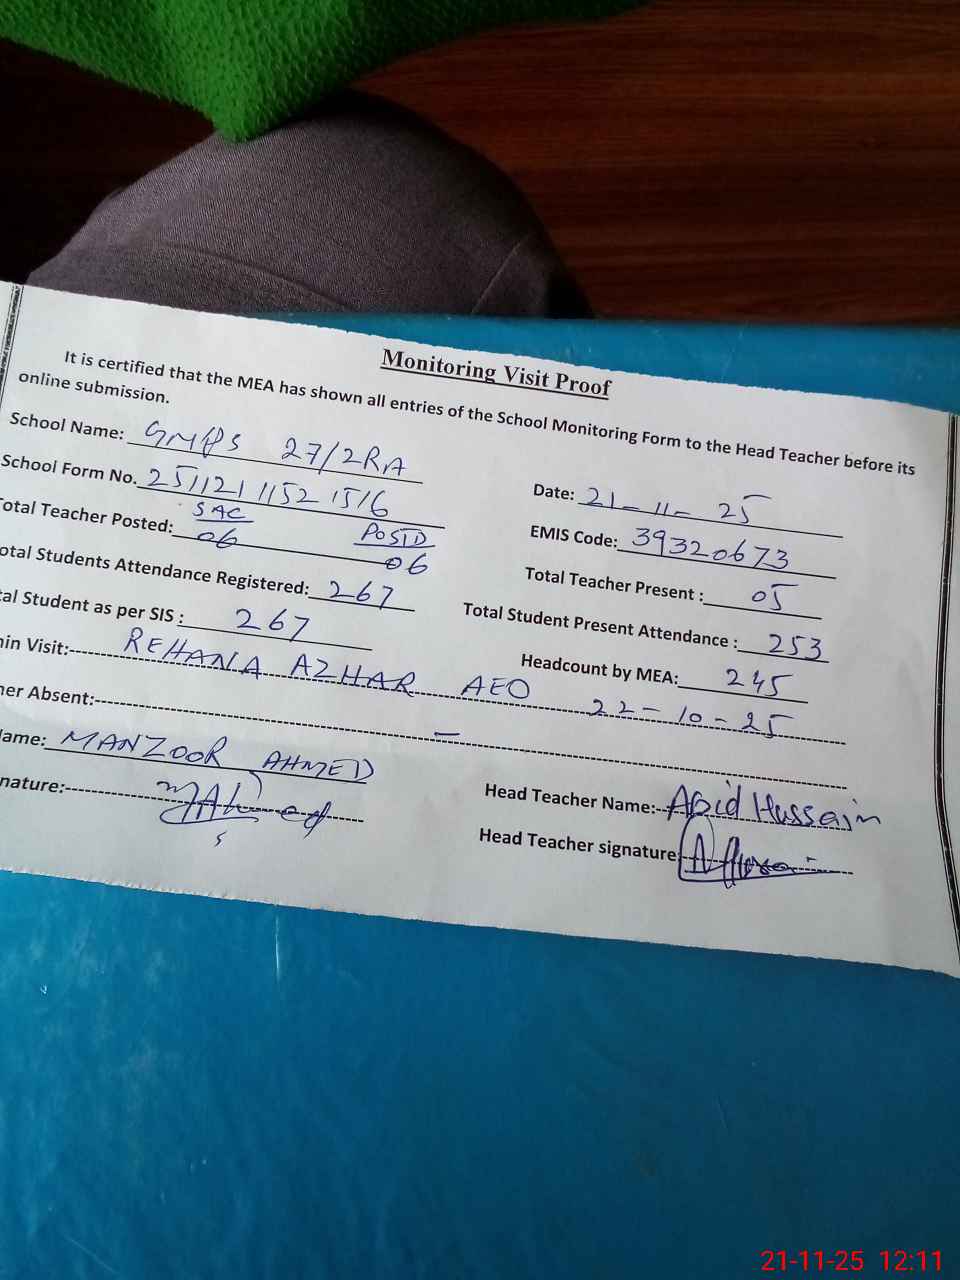 Monitoring Visit Proof
It is certified that the MEA has shown all entries of the School Monitoring Form to the Head Teacher before its
online submission.
School Name: GMPS 27/2RA
Date: 21-11-25
School Form No. 251121 1152 1516
EMIS Code: 39320673
otal Teacher Posted: SAC 06 POSTD 06
Total Teacher Present : 05
otal Students Attendance Registered: 267
Total Student Present Attendance : 253
al Student as per SIS : 267
Headcount by MEA: 245
min Visit: REHANA AZHAR AEO 22-10-25
her Absent: —
Name: MANZOOR AHMED
Head Teacher Name: Abid Hussain
nature: MAhmed
Head Teacher signature
21-11-25 12:11